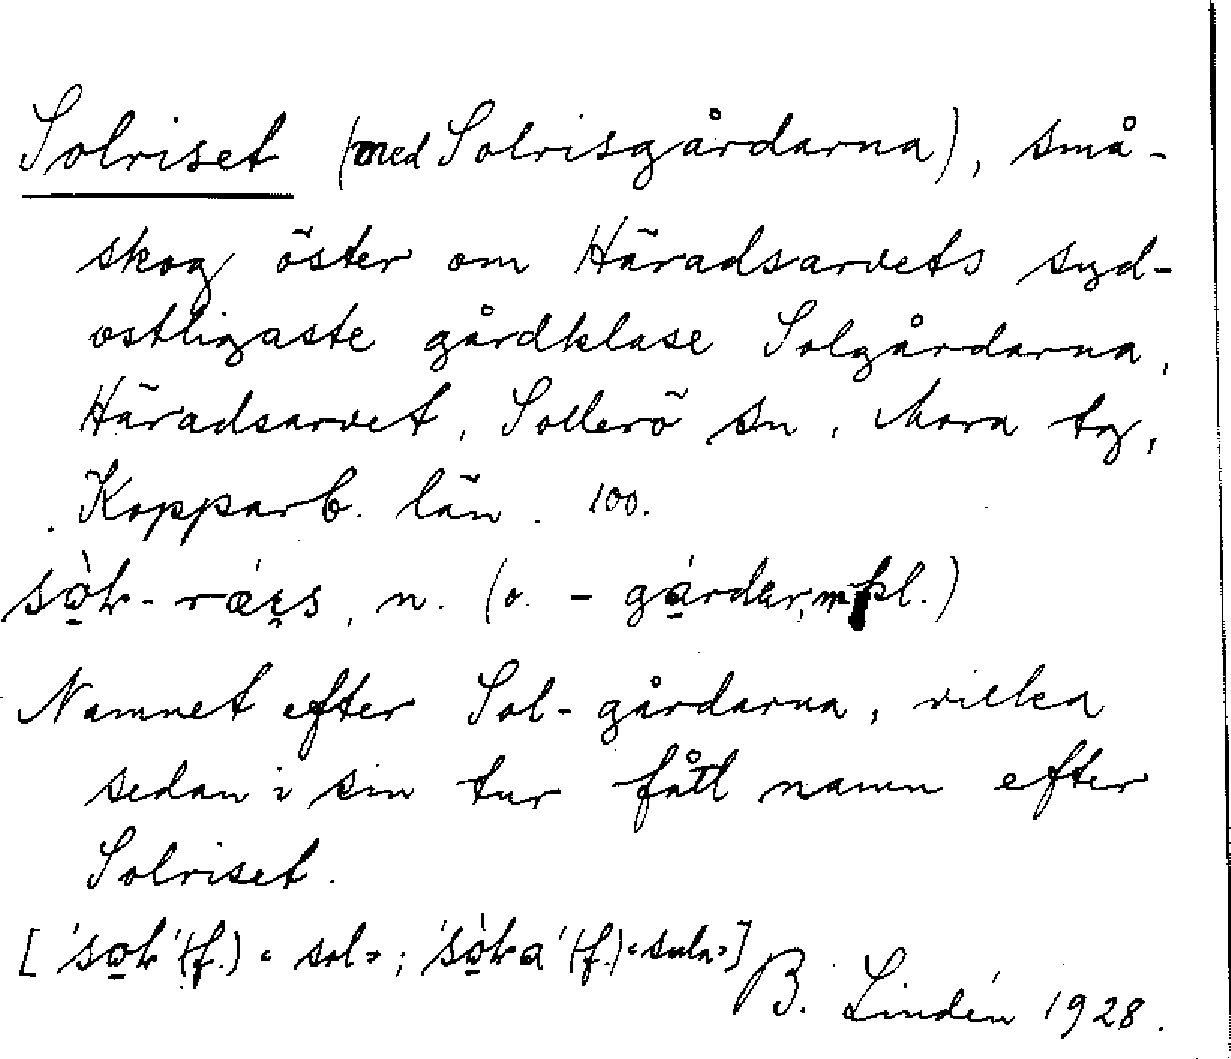 Solriset (med Solrisgårdarna), små-
skog öster om Häradsarvets syd-
ostligaste gårdklase Solgårdarna,
Häradsarvet, Sollerö sn, Mora tg,
Kopparb. län. 100.
n. (o. - m. pl.)
Namnet efter Sol-gårdarna, vilka
sedan i sin tur fått namn efter
Solriset.
(f.) «sol»; (f.) «sula»]
B. Lindén 1928.